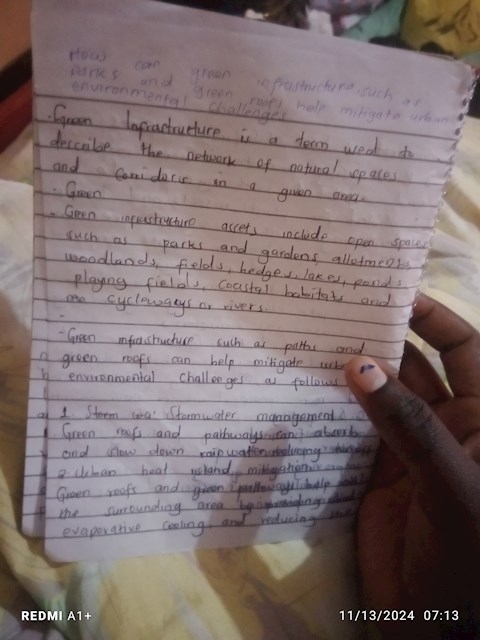 How can green infrastructure such as
parks and green roofs help mitigate urban
environmental challenges
-Green Infrastructure is a term used to
describe the network of natural spaces
and corridors in a given area.
- Green
- Green infrastructure assets include open spaces
such as parks and gardens, allotments,
woodlands, fields, hedges, lakes, ponds,
playing fields, coastal habitats and
cycleways or rivers.
-Green infrastructure such as paths and
green roofs can help mitigate urb
environmental challeges as follows
1. Stormwater management
Green roofs and pathways can absorb
and slow down rainwater
2. Urban heat island mitigation
Green roofs and green pathways help
the surrounding area by
evaporative cooling and reducing
REDMI A1+
11/13/2024 07:13